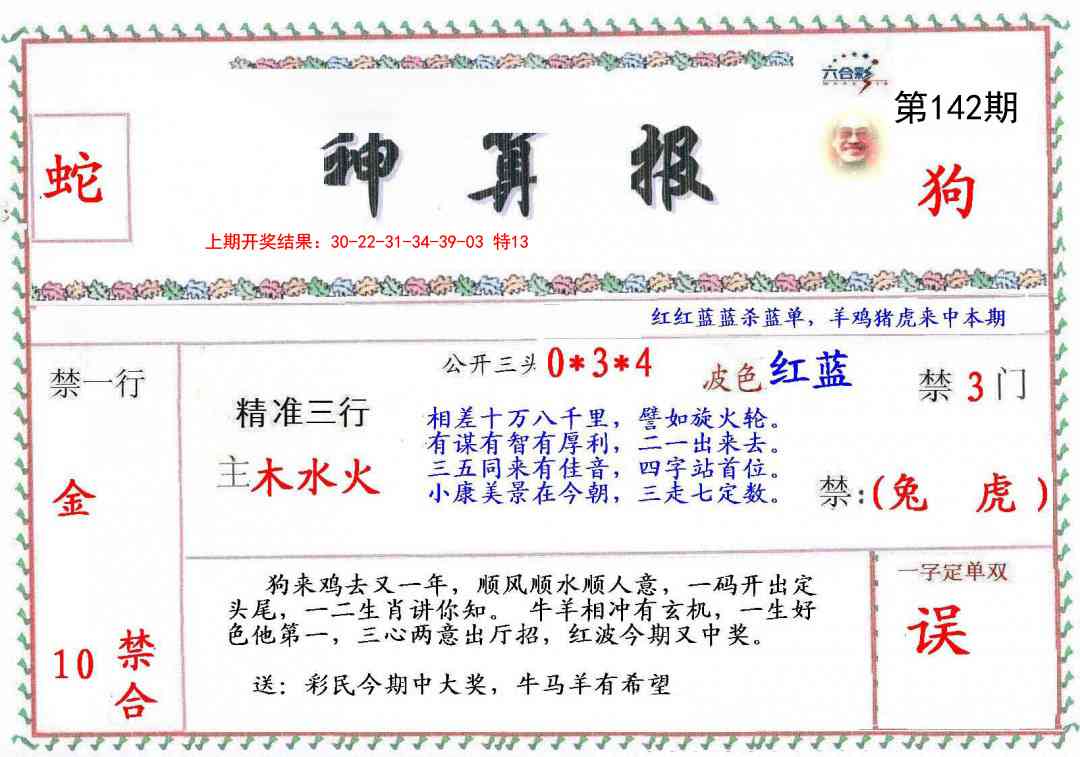 六合彩
第142期
蛇
神算报
狗
上期开奖结果：30-22-31-34-39-03 特13
红红蓝蓝杀蓝单，羊鸡猪虎来中本期
禁一行
公开三头 0*3*4
波色 红蓝
禁 3 门
精准三行
主木水火
相差十万八千里，譬如旋火轮。
有谋有智有厚利，二一出来去。
三五同来有佳音，四字站首位。
小康美景在今朝，三走七定数。
禁：(兔 虎)
金
10 禁合
狗来鸡去又一年，顺风顺水顺人意，一码开出定
头尾，一二生肖讲你知。 牛羊相冲有玄机，一生好
色他第一，三心两意出厅招，红波今期又中奖。
送：彩民今期中大奖，牛马羊有希望
一字定单双
误